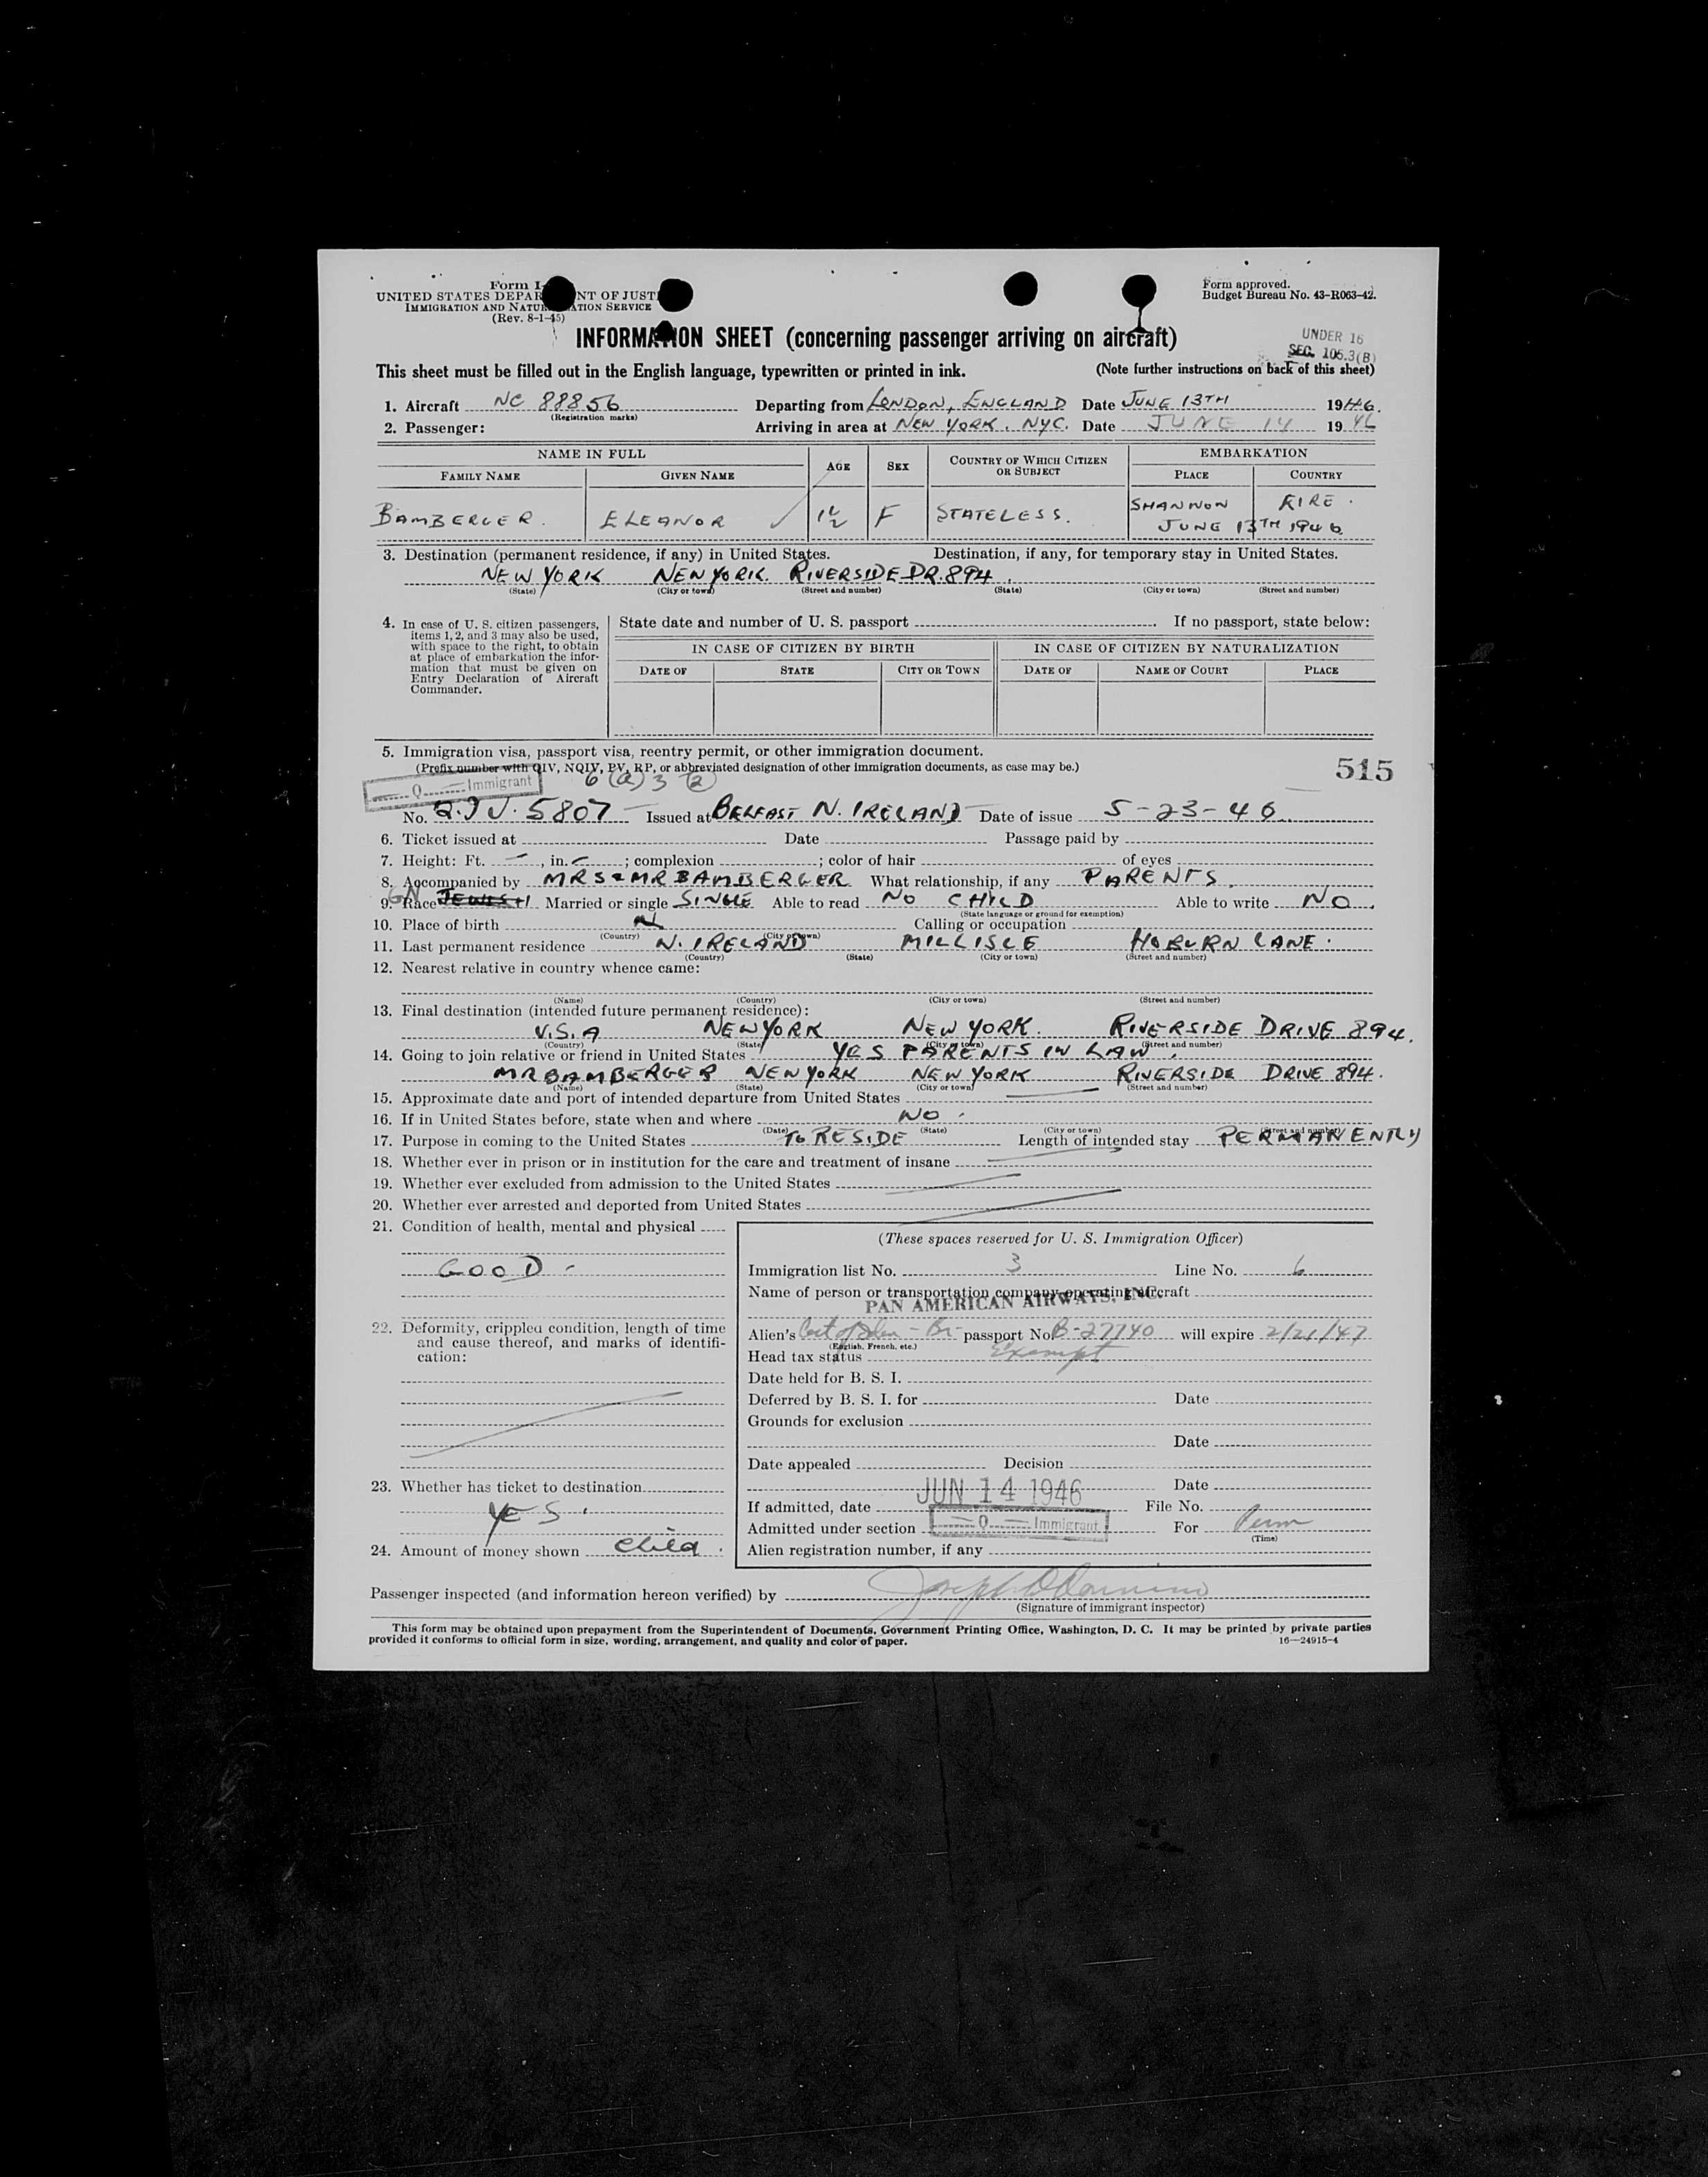 Form I-
UNITED STATES DEPAR NT OF JUST
IMMIGRATION AND NATUR ATION SERVICE
(Rev. 8-1-45)
Form approved.
Budget Bureau No. 43-R063-42.
INFORMATION SHEET (concerning passenger arriving on aircraft)
UNDER 16
SEC. 105.3(B)
This sheet must be filled out in the English language, typewritten or printed in ink. (Note further instructions on back of this sheet)
1. Aircraft NC 88856 Departing from LONDON, ENGLAND Date JUNE 13TH 1946.
(Registration marks)
2. Passenger: Arriving in area at NEW YORK. NYC. Date JUNE 14 1946
NAME IN FULL AGE SEX COUNTRY OF WHICH CITIZEN OR SUBJECT EMBARKATION
FAMILY NAME GIVEN NAME PLACE COUNTRY
BAMBERGER. ELEANOR 1½ F STATELESS. SHANNON EIRE.
JUNE 13TH 1946
3. Destination (permanent residence, if any) in United States. Destination, if any, for temporary stay in United States.
NEW YORK NEW YORK. RIVERSIDE DR. 894.
(State) (City or town) (Street and number) (State) (City or town) (Street and number)
4. In case of U. S. citizen passengers, items 1, 2, and 3 may also be used, with space to the right, to obtain at place of embarkation the information that must be given on Entry Declaration of Aircraft Commander.
State date and number of U. S. passport If no passport, state below:
IN CASE OF CITIZEN BY BIRTH IN CASE OF CITIZEN BY NATURALIZATION
DATE OF STATE CITY OR TOWN DATE OF NAME OF COURT PLACE
5. Immigration visa, passport visa, reentry permit, or other immigration document.
(Prefix number with QIV, NQIV, PV, RP, or abbreviated designation of other immigration documents, as case may be.)
515
Q Immigrant 6 (a) 3 (2)
No. Q.I V. 5807 Issued at BELFAST N. IRELAND Date of issue 5-23-46
6. Ticket issued at Date Passage paid by
7. Height: Ft. , in. ; complexion ; color of hair of eyes
8. Accompanied by MRS & MR BAMBERGER What relationship, if any PARENTS.
9. Race JEWISH Married or single SINGLE Able to read NO CHILD Able to write NO.
(State language or ground for exemption)
10. Place of birth Calling or occupation
(Country) (City or town)
11. Last permanent residence N. IRELAND MILLISLE HOBURN LANE.
(Country) (State) (City or town) (Street and number)
12. Nearest relative in country whence came:
(Name) (Country) (City or town) (Street and number)
13. Final destination (intended future permanent residence):
U.S.A NEW YORK NEW YORK. RIVERSIDE DRIVE 894.
(Country) (State) (City or town) (Street and number)
14. Going to join relative or friend in United States YES PARENTS IN LAW.
MR BAMBERGER NEW YORK NEW YORK RIVERSIDE DRIVE 894.
(Name) (State) (City or town) (Street and number)
15. Approximate date and port of intended departure from United States
16. If in United States before, state when and where NO.
(Date) (State) (City or town) (Street and number)
17. Purpose in coming to the United States TO RESIDE Length of intended stay PERMANENTLY
18. Whether ever in prison or in institution for the care and treatment of insane
19. Whether ever excluded from admission to the United States
20. Whether ever arrested and deported from United States
21. Condition of health, mental and physical
GOOD.
22. Deformity, crippled condition, length of time and cause thereof, and marks of identification:
23. Whether has ticket to destination
YES.
24. Amount of money shown child.
(These spaces reserved for U. S. Immigration Officer)
Immigration list No. 3 Line No. 6
Name of person or transportation company operating aircraft
PAN AMERICAN AIRWAYS, INC.
Alien's Cert of Iden - Br- passport No. B-27740 will expire 2/21/47
(English, French, etc.)
Head tax status Exempt
Date held for B. S. I.
Deferred by B. S. I. for Date
Grounds for exclusion
Date
Date appealed Decision
Date
If admitted, date JUN 14 1946 File No.
Admitted under section Q Immigrant For Perm
(Time)
Alien registration number, if any
Passenger inspected (and information hereon verified) by Joseph
(Signature of immigrant inspector)
This form may be obtained upon prepayment from the Superintendent of Documents, Government Printing Office, Washington, D. C. It may be printed by private parties
provided it conforms to official form in size, wording, arrangement, and quality and color of paper. 16—24915-4